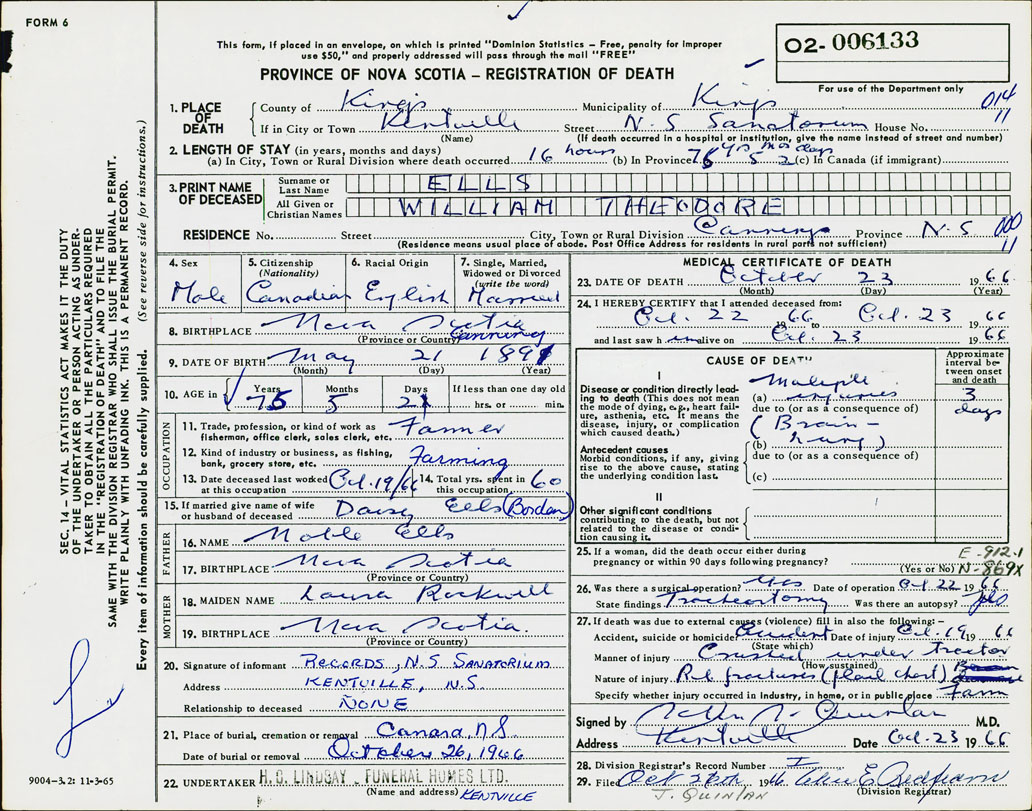 FORM 6
This form, if placed in an envelope, on which is printed "Dominion Statistics – Free, penalty for improper
use $50," and properly addressed will pass through the mail "FREE"
PROVINCE OF NOVA SCOTIA – REGISTRATION OF DEATH
O2- 006133
For use of the Department only
1. PLACE OF DEATH
County of Kings Municipality of Kings 014
If in City or Town Kentville Street N.S Sanatorium House No. 11
(Name) (If death occurred in a hospital or institution, give the name instead of street and number)
2. LENGTH OF STAY (in years, months and days)
(a) In City, Town or Rural Division where death occurred 16 hours (b) In Province 75 yrs 5 mos 2 days (c) In Canada (if immigrant)
3. PRINT NAME OF DECEASED
Surname or Last Name ELLS
All Given or Christian Names WILLIAM THEODORE
RESIDENCE No. Street City, Town or Rural Division Canning Province N.S 000
(Residence means usual place of abode. Post Office Address for residents in rural parts not sufficient) 11
4. Sex Male
5. Citizenship (Nationality) Canadian
6. Racial Origin English
7. Single, Married, Widowed or Divorced (write the word) Married
8. BIRTHPLACE Nova Scotia
(Province or Country) Canning
9. DATE OF BIRTH May 21 1891
(Month) (Day) (Year)
10. AGE in Years 75 Months 5 Days 2 If less than one day old
hrs. or min.
OCCUPATION
11. Trade, profession, or kind of work as fisherman, office clerk, sales clerk, etc. Farmer
12. Kind of industry or business, as fishing, bank, grocery store, etc. Farming
13. Date deceased last worked at this occupation Oct. 19/66
14. Total yrs. spent in this occupation 60
15. If married give name of wife or husband of deceased Daisy Ells (Borden)
FATHER
16. NAME Noble Ells
17. BIRTHPLACE Nova Scotia
(Province or Country)
MOTHER
18. MAIDEN NAME Laura Rockwell
19. BIRTHPLACE Nova Scotia.
(Province or Country)
20. Signature of informant RECORDS, N.S SANATORIUM
Address KENTVILLE, N.S.
Relationship to deceased NONE
21. Place of burial, cremation or removal Canard, NS
Date of burial or removal October 26, 1966
22. UNDERTAKER H. C. LINDSAY FUNERAL HOMES LTD.
(Name and address) KENTVILLE
MEDICAL CERTIFICATE OF DEATH
23. DATE OF DEATH October 23 1966
(Month) (Day) (Year)
24. I HEREBY CERTIFY that I attended deceased from:
Oct. 22 1966 to Oct. 23 1966
and last saw h im alive on Oct. 23 1966
CAUSE OF DEATH
Approximate interval between onset and death
I
Disease or condition directly leading to death (This does not mean the mode of dying, e.g., heart failure, asthenia, etc. It means the disease, injury, or complication which caused death.)
(a) Multiple injuries 3 days
due to (or as a consequence of)
(Brain-
(b) lung)
due to (or as a consequence of)
(c)
Antecedent causes
Morbid conditions, if any, giving rise to the above cause, stating the underlying condition last.
II
Other significant conditions
contributing to the death, but not related to the disease or condition causing it.
25. If a woman, did the death occur either during pregnancy or within 90 days following pregnancy?
(Yes or No)
E-912.1
N-869X
26. Was there a surgical operation? Yes Date of operation Oct. 22 1966
State findings Tracheostomy Was there an autopsy? yes
27. If death was due to external causes (violence) fill in also the following:–
Accident, suicide or homicide Accident Date of injury Oct. 19 1966
(State which)
Manner of injury Crushed under tractor
(How sustained)
Nature of injury Rib fractures (flail chest)
Specify whether injury occurred in industry, in home, or in public place Farm
Signed by John J. Quinlan M.D.
Address Kentville Date Oct. 23 1966
28. Division Registrar's Record Number I
29. Filed Oct 26th 1966
(Division Registrar)
J. QUINLAN
SEC. 14 – VITAL STATISTICS ACT MAKES IT THE DUTY
OF THE UNDERTAKER OR PERSON ACTING AS UNDER-
TAKER TO OBTAIN ALL THE PARTICULARS REQUIRED
IN THE "REGISTRATION OF DEATH" AND TO FILE THE
SAME WITH THE DIVISION REGISTRAR WHO SHALL ISSUE THE BURIAL PERMIT.
WRITE PLAINLY WITH UNFADING INK. THIS IS A PERMANENT RECORD.
Every item of information should be carefully supplied. (See reverse side for instructions.)
9004-3.2: 11-3-65